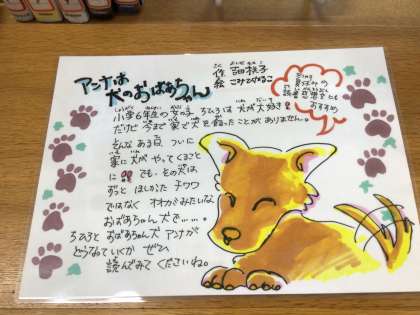 アンナは
犬のおばあちゃん
さく よしだ ももこ
作 吉田桃子
絵 こみてつねこ
夏休みの
読書感想文にも
おすすめ
小学6年生の女の子 ちひろは 犬が大好き!
だけど 今まで 家で 犬を飼ったことが ありません。
そんな ある日 ついに
家に犬が やってくること
に!! でも、その犬は
ずっと ほしかった チワワ
ではなく オオカミみたいな
おばあちゃん犬で…。
ちひろと おばあちゃん犬 アンナが
どうなっていくか ぜひ
読んでみて くださいね。